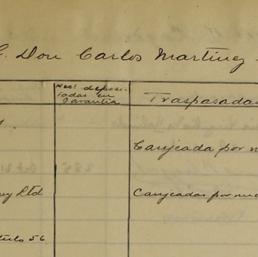 Don Carlos Martinez
Nos! deposi-
tadas en
Garantia
Traspasadas
Canjeada por
Ltd
Canjeadas por
56